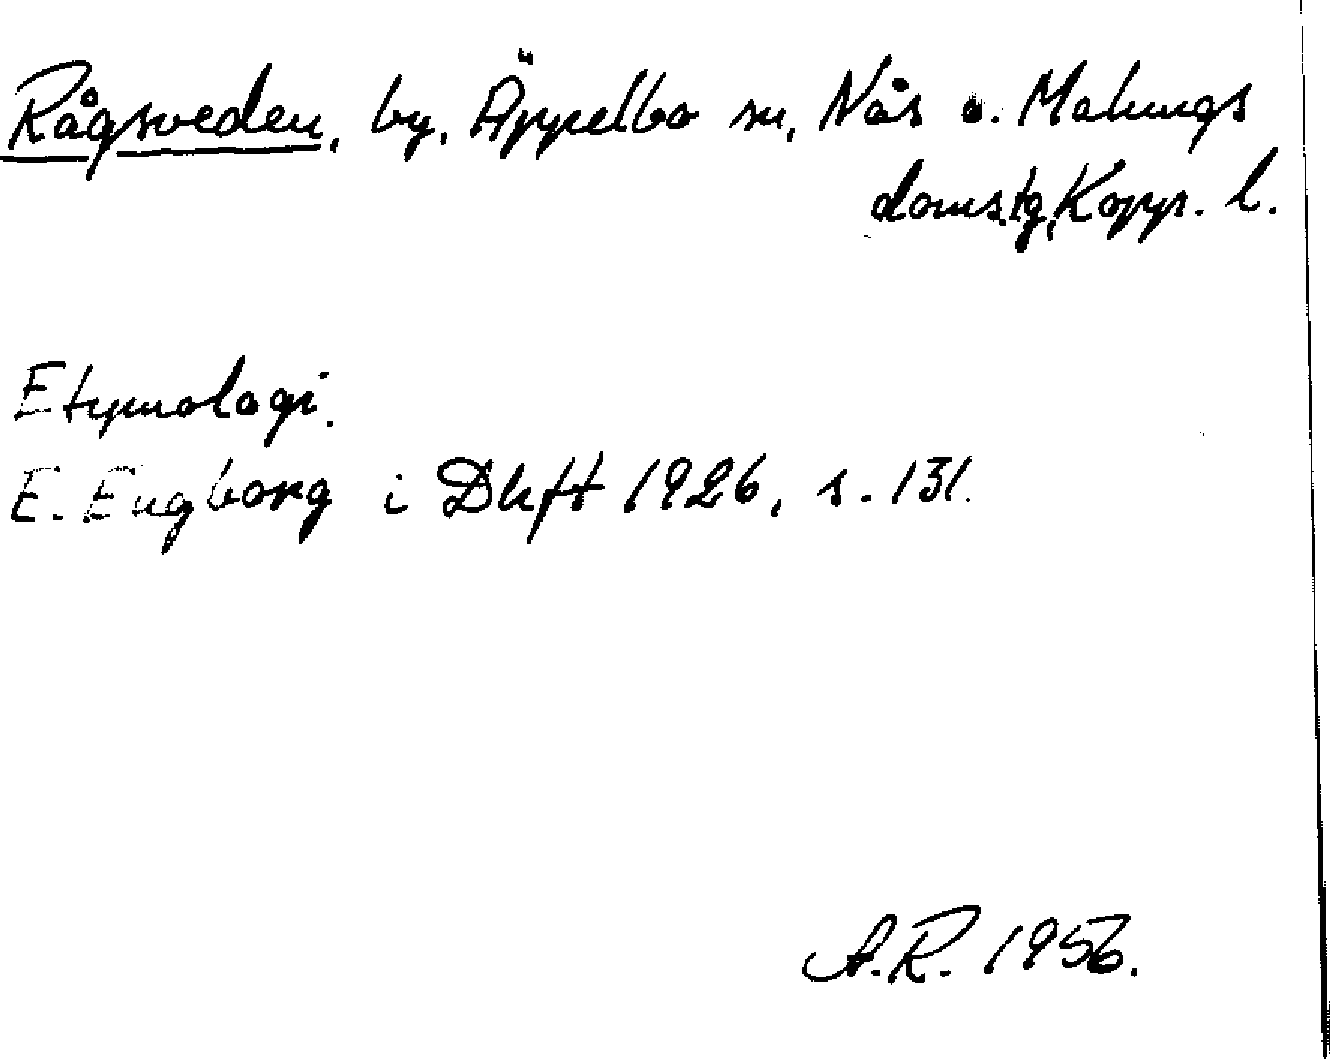 Rågsveden, by, Äppelbo sn, Nås o. Malungs
domstg, Kopp. l.
Etymologi.
E. Engborg i Dhft 1926, s. 131.
A.R. 1956.